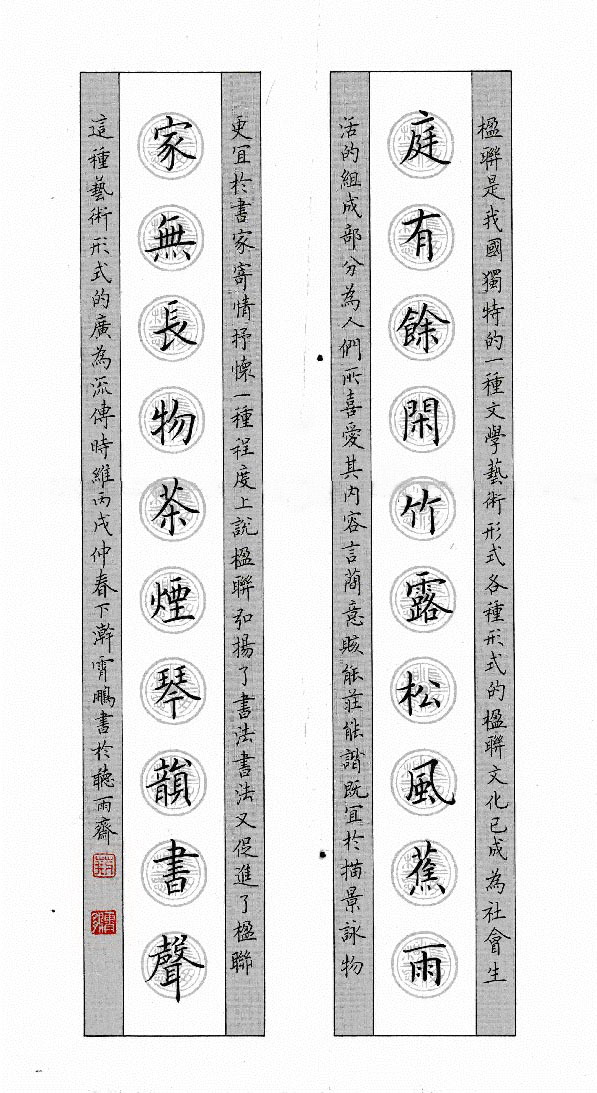 楹聯是我國獨特的一種文學藝術形式各種形式的楹聯文化已成為社會生
庭有餘閑竹露松風蕉雨
活的組成部分為人們所喜愛其内容言簡意賅能莊能諧既宜於描景詠物
更宜於書家寄情抒懷一種程度上說楹聯弘揚了書法書法又促進了楹聯
家無長物茶煙琴韻書聲
這種藝術形式的廣為流傳時維丙戌仲春下澣霄鵬書於聽雨齋